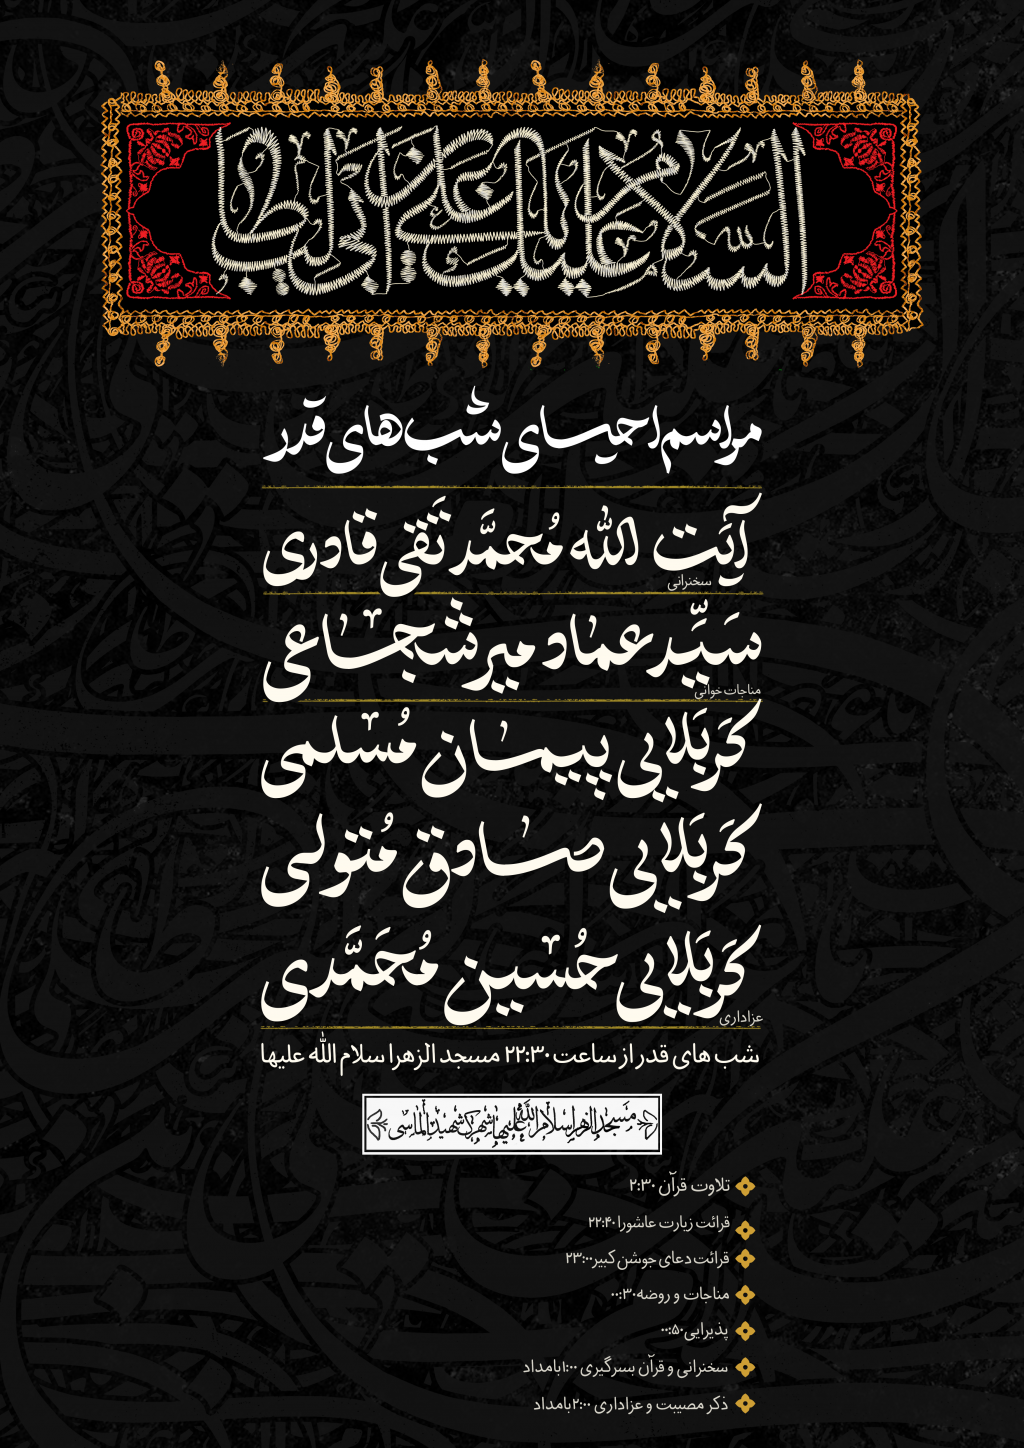 السلام علیک یا علی ابن ابی طالب
مراسم احیای شب‌های قدر
آیَت الله مُحمَّد تَقی قادری
سخنرانی
سَیِّد عماد میرشجاعی
مناجات خوانی
کَربَلایی پیمان مُسلمی
کَربَلایی صادق مُتولی
کَربَلایی حُسین مُحَمَّدی
عزاداری
شب های قدر از ساعت ۲۲:۳۰ مسجد الزهرا سلام الله علیها
مسجد الزهرا سلام الله علیها شهرک شهید الماسی
تلاوت قرآن ۲:۳۰
قرائت زیارت عاشورا ۲۲:۴۰
قرائت دعای جوشن کبیر ۲۳:۰۰
مناجات و روضه ۰۰:۳۰
پذیرایی ۰۰:۵۰
سخنرانی و قرآن بسرگیری ۱:۰۰ بامداد
ذکر مصیبت و عزاداری ۲:۰۰ بامداد